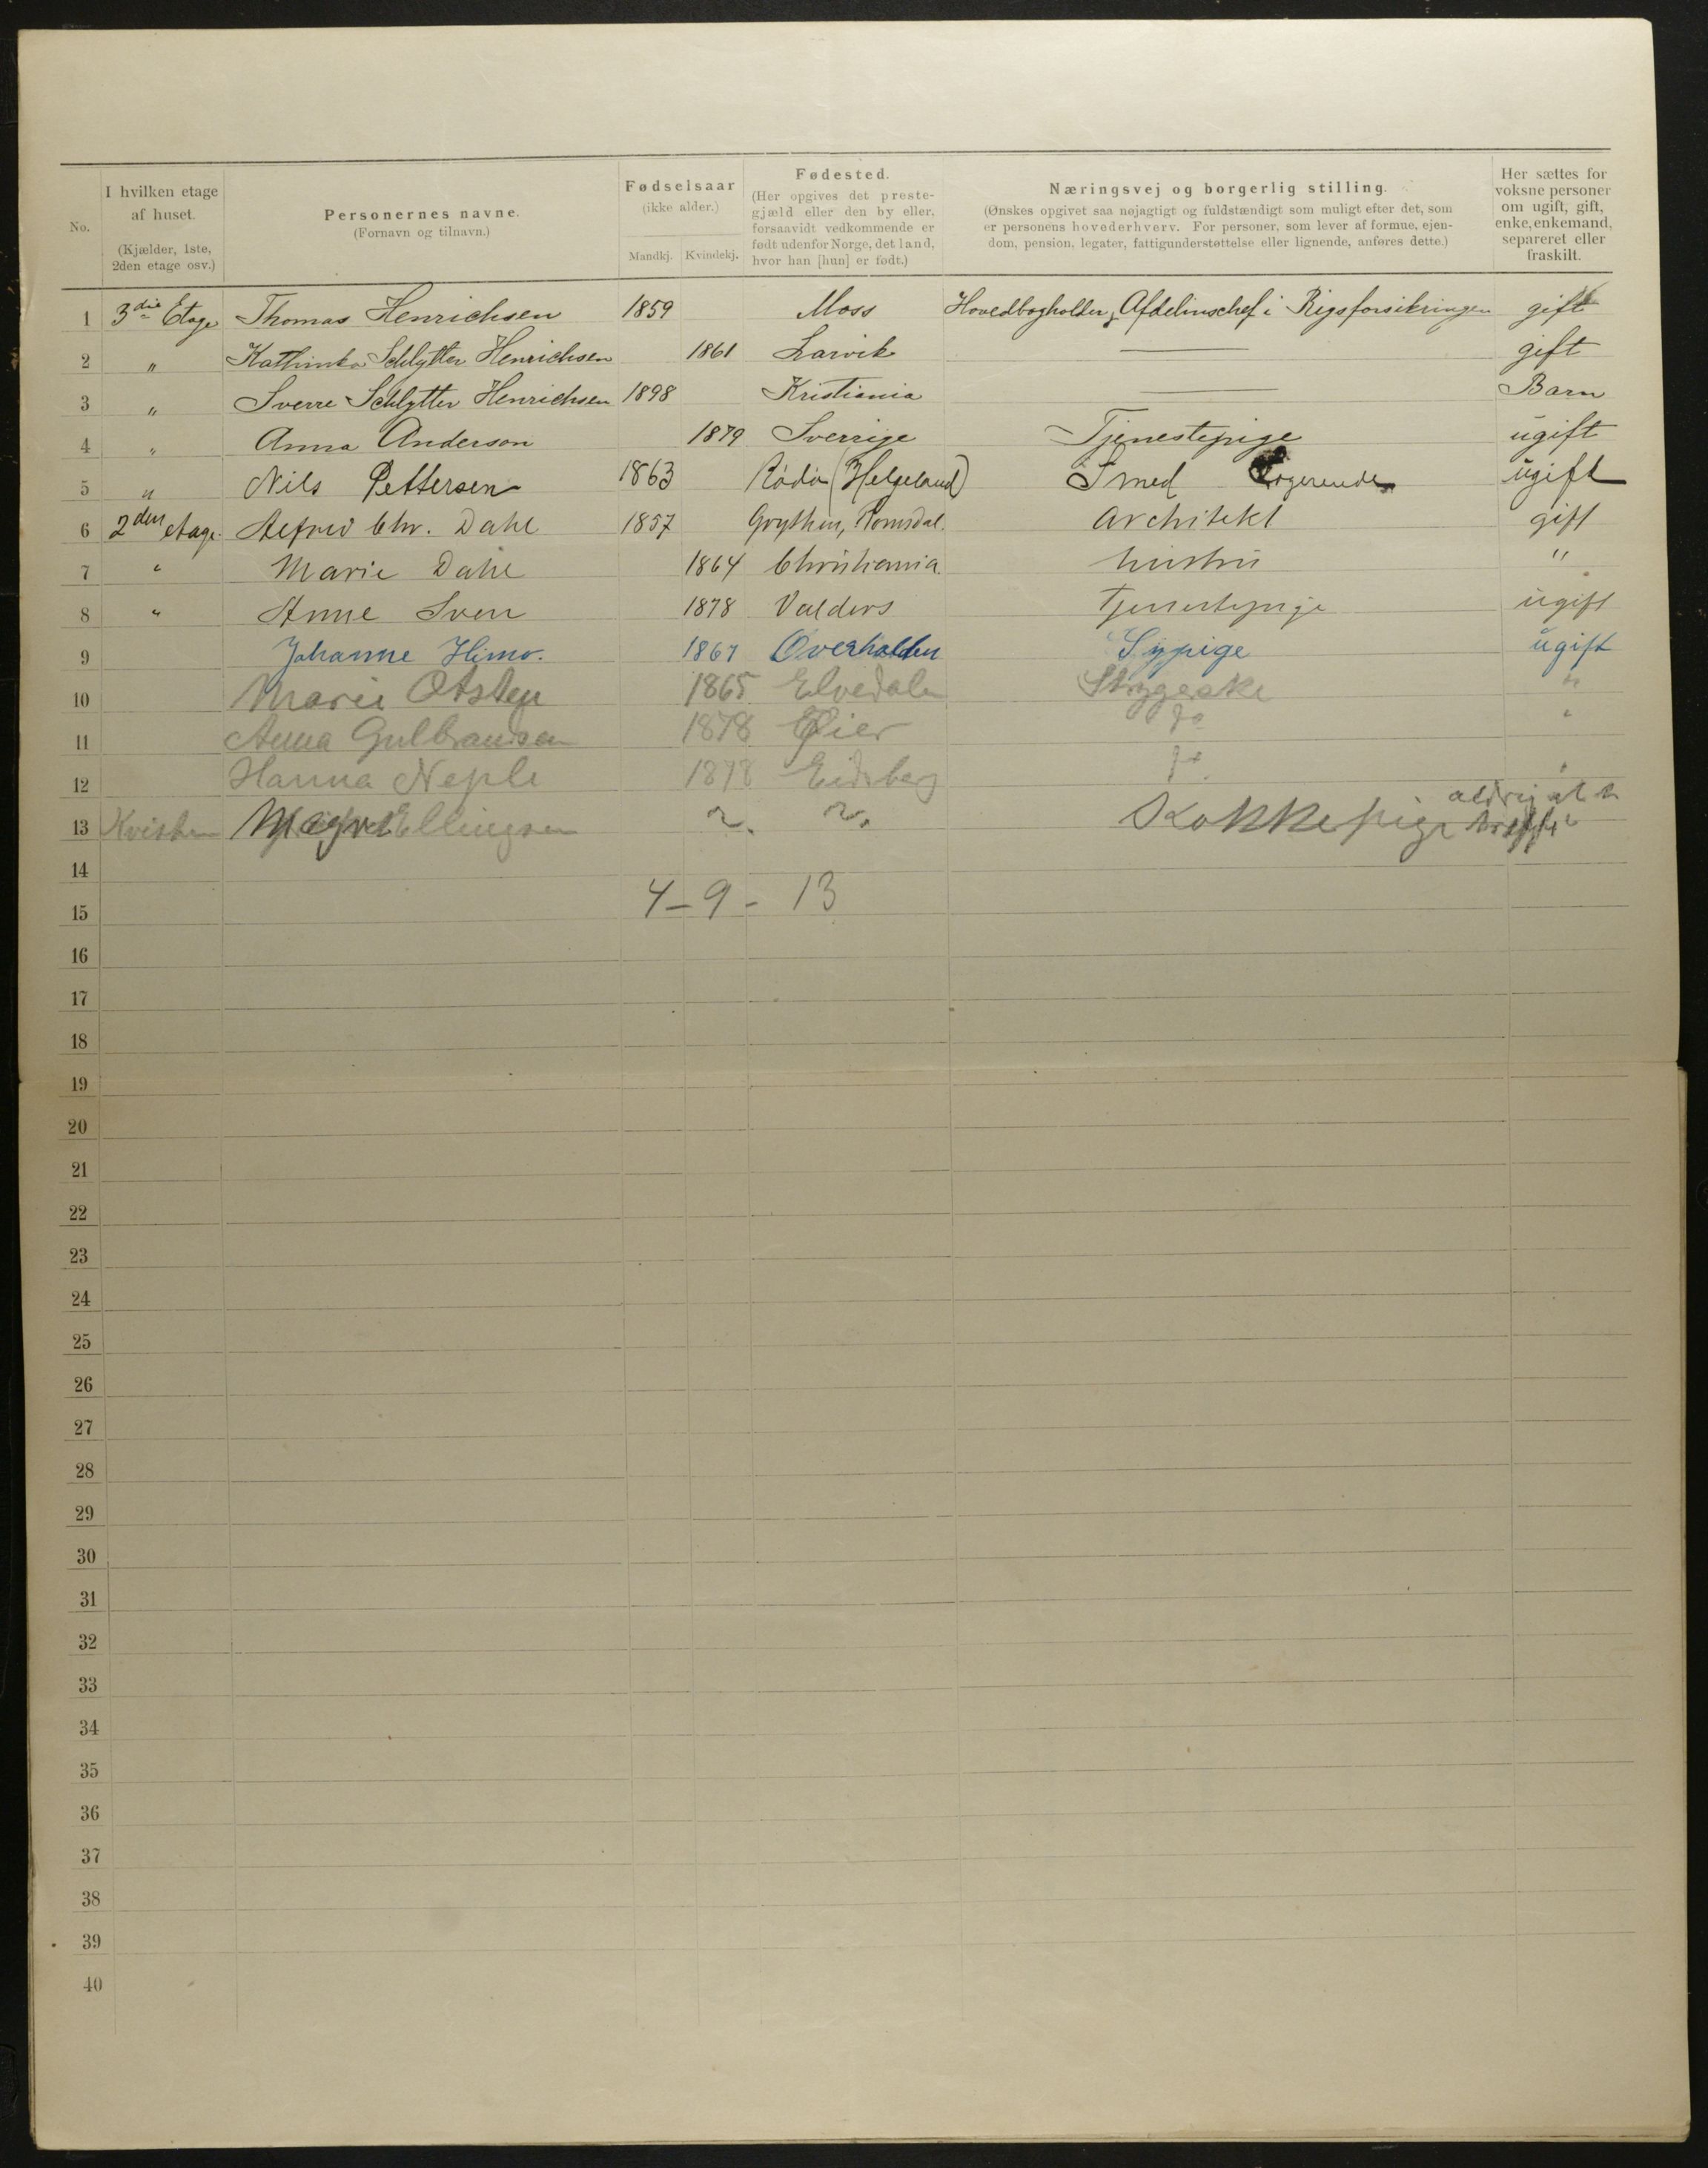 No.
I hvilken etage
af huset.
(Kjælder, 1ste,
2den etage osv.)
Personernes navne.
(Fornavn og tilnavn.)
Fødselsaar
(ikke alder.)
Mandkj. Kvindekj.
Fødested.
(Her opgives det preste-
gjæld eller den by eller,
forsaavidt vedkommende er
født udenfor Norge, det land,
hvor han [hun] er født.)
Næringsvej og borgerlig stilling.
(Ønskes opgivet saa nøjagtigt og fuldstændigt som muligt efter det, som
er personens hovederhverv. For personer, som lever af formue, ejen-
dom, pension, legater, fattigunderstøttelse eller lignende, anføres dette.)
Her sættes for
voksne personer
om ugift, gift,
enke, enkemand,
separeret eller
fraskilt.
1 3die Etage Thomas Henrichsen 1859 Moss Hovedbogholder, Afdelinschef i Rigsforsikringen gift
2 " Kathinka Schlytter Henrichsen 1861 Larvik — gift
3 " Sverre Schlytter Henrichsen 1898 Kristiania — Barn
4 " Anna Anderson 1879 Sverrige Tjenestepige ugift
5 " Nils Pettersen 1863 Rödö (Helgeland) Smed Logerende ugift
6 2den etage. Alfred Chr. Dahl 1857 Grytten, Romsdal. Architekt gift
7 " Marie Dahl 1864 Christiania. hustru "
8 " Anne Sven 1878 Valders Tjenestepige ugift
9 Johanne Himo. 1867 Overhalden Sypige ugift
10 Marie 1865 Elvedalen Strygerske "
11 Anna Gulbransen 1878 Øier do "
12 Hanna Neple 1878 Eidsberg do "
13 Kvisten Ellingsen ~. ~. Kokkepige aldrig at træffe
14
15 4-9- 13
16
17
18
19
20
21
22
23
24
25
26
27
28
29
30
31
32
33
34
35
36
37
38
39
40